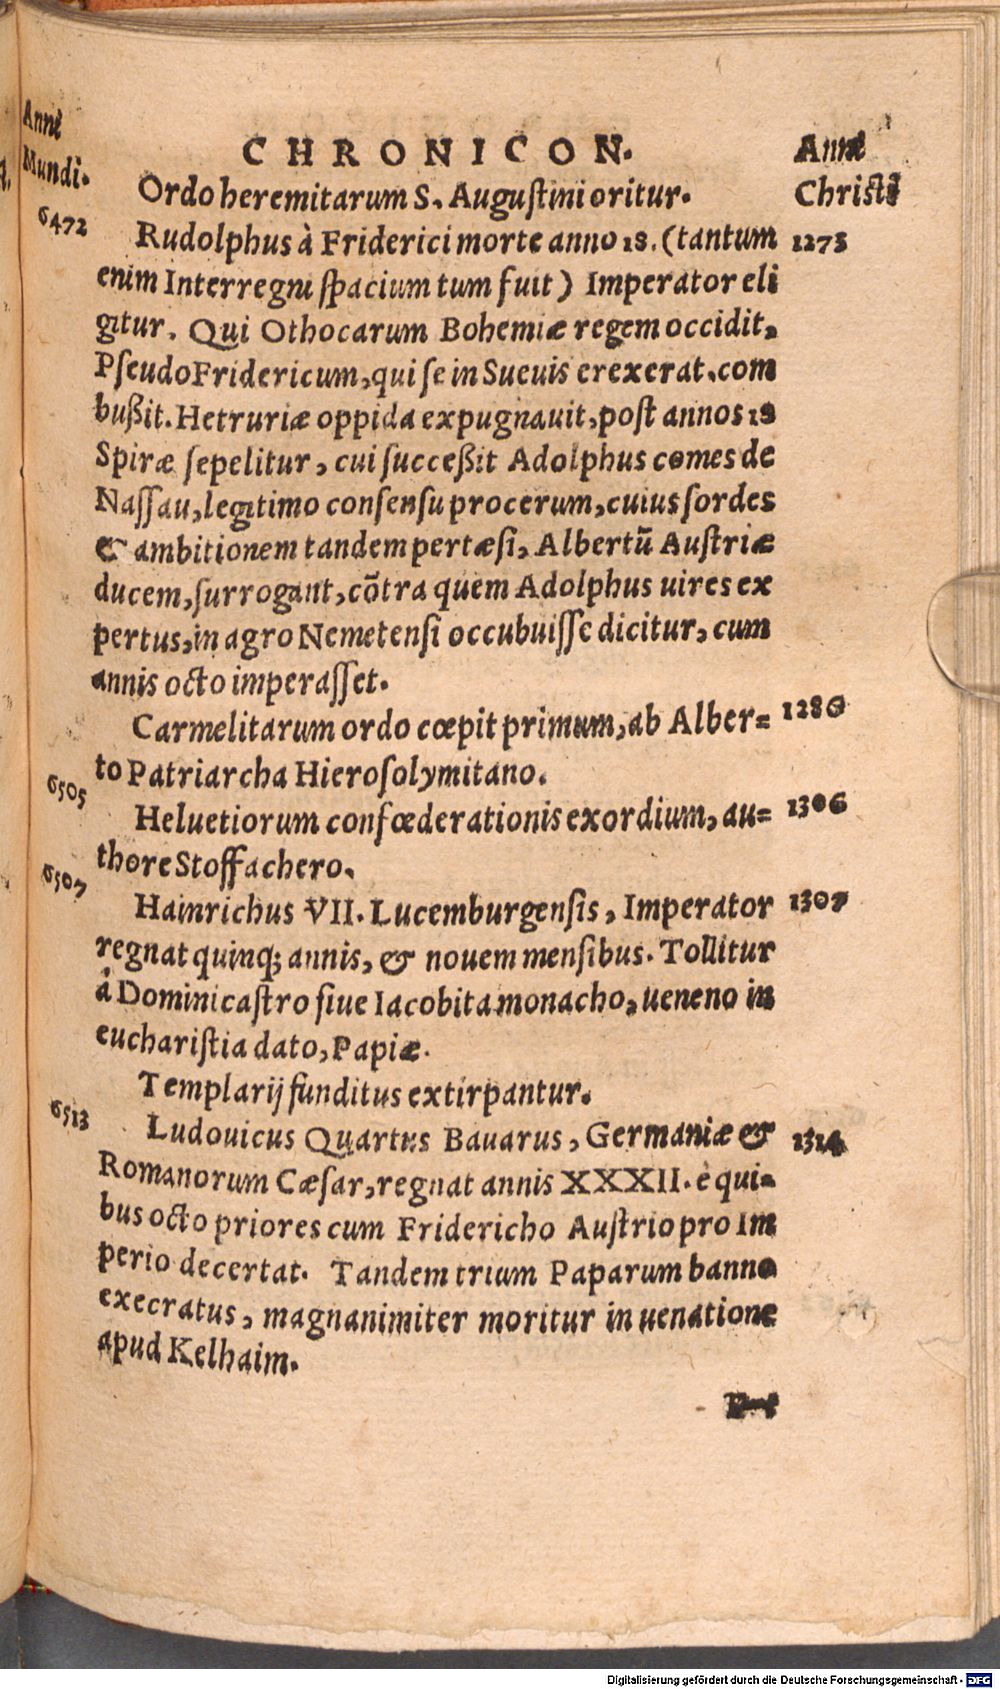 Anni
Mundi.
CHRONICON.
Anni
Christi
Ordo heremitarum S. Augustini oritur.
6472
Rudolphus à Friderici morte anno 18. (tantum
1273
enim Interregni spacium tum fuit) Imperator eli
gitur. Qui Othocarum Bohemiæ regem occidit,
PseudoFridericum, qui se in Sueuis erexerat, com
bußit. Hetruriæ oppida expugnauit, post annos 18
Spiræ sepelitur, cui succeßit Adolphus comes de
Nassau, legitimo consensu procerum, cuius sordes
& ambitionem tandem pertæsi, Albertũ Austriæ
ducem, surrogant, cõtra quem Adolphus uires ex
pertus, in agro Nemetensi occubuisse dicitur, cum
annis octo imperasset.
Carmelitarum ordo cœpit primum, ab Alber=
1286
to Patriarcha Hierosolymitano.
6505
Heluetiorum confœderationis exordium, au=
1306
thore Stoffachero.
6507
Hainrichus VII. Lucemburgensis, Imperator
1307
regnat quinq; annis, & nouem mensibus. Tollitur
à Dominicastro siue Iacobita monacho, ueneno in
eucharistia dato, Papiæ.
Templarij funditus extirpantur.
6513
Ludouicus Quartus Bauarus, Germaniæ &
1314
Romanorum Cæsar, regnat annis XXXII. è qui=
bus octo priores cum Fridericho Austrio pro Im
perio decertat. Tandem trium Paparum banno
execratus, magnanimiter moritur in uenatione
apud Kelhaim.
Digitalisierung gefördert durch die Deutsche Forschungsgemeinschaft - DFG